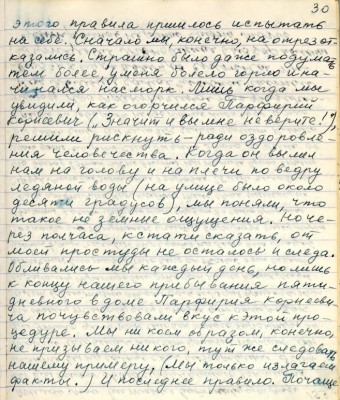 30
этого правила пришлось испытать
на себе. Сначала мы, конечно, наотрез от-
казались. Страшно было даже подумать
тем более, у меня болело горло и на-
чинался насморк. Лишь когда мы
увидили, как огорчился Парфирий
Корнеевич („Значит и вы мне не верите!"),
решили рискнуть – ради оздоровле-
ния человечества. Когда он вылил
нам на голову и на плечи по ведру
ледяной воды (на улице было около
десяти градусов), мы поняли, что
такое не земные ощущения. Но че-
рез полчаса, кстати сказать, от
моей простуды не осталось и следа.
Обливались мы каждый день, но лишь
к концу нашего прибывания пяти-
дневного в доме Парфирия Корнееви-
ча почувствовали вкус к этой про-
цедуре. Мы ни коем образом, конечно,
не призываем никого, тут же следовать
нашему примеру, (Мы только излагаем
факты.) И последнее правило. Почаще